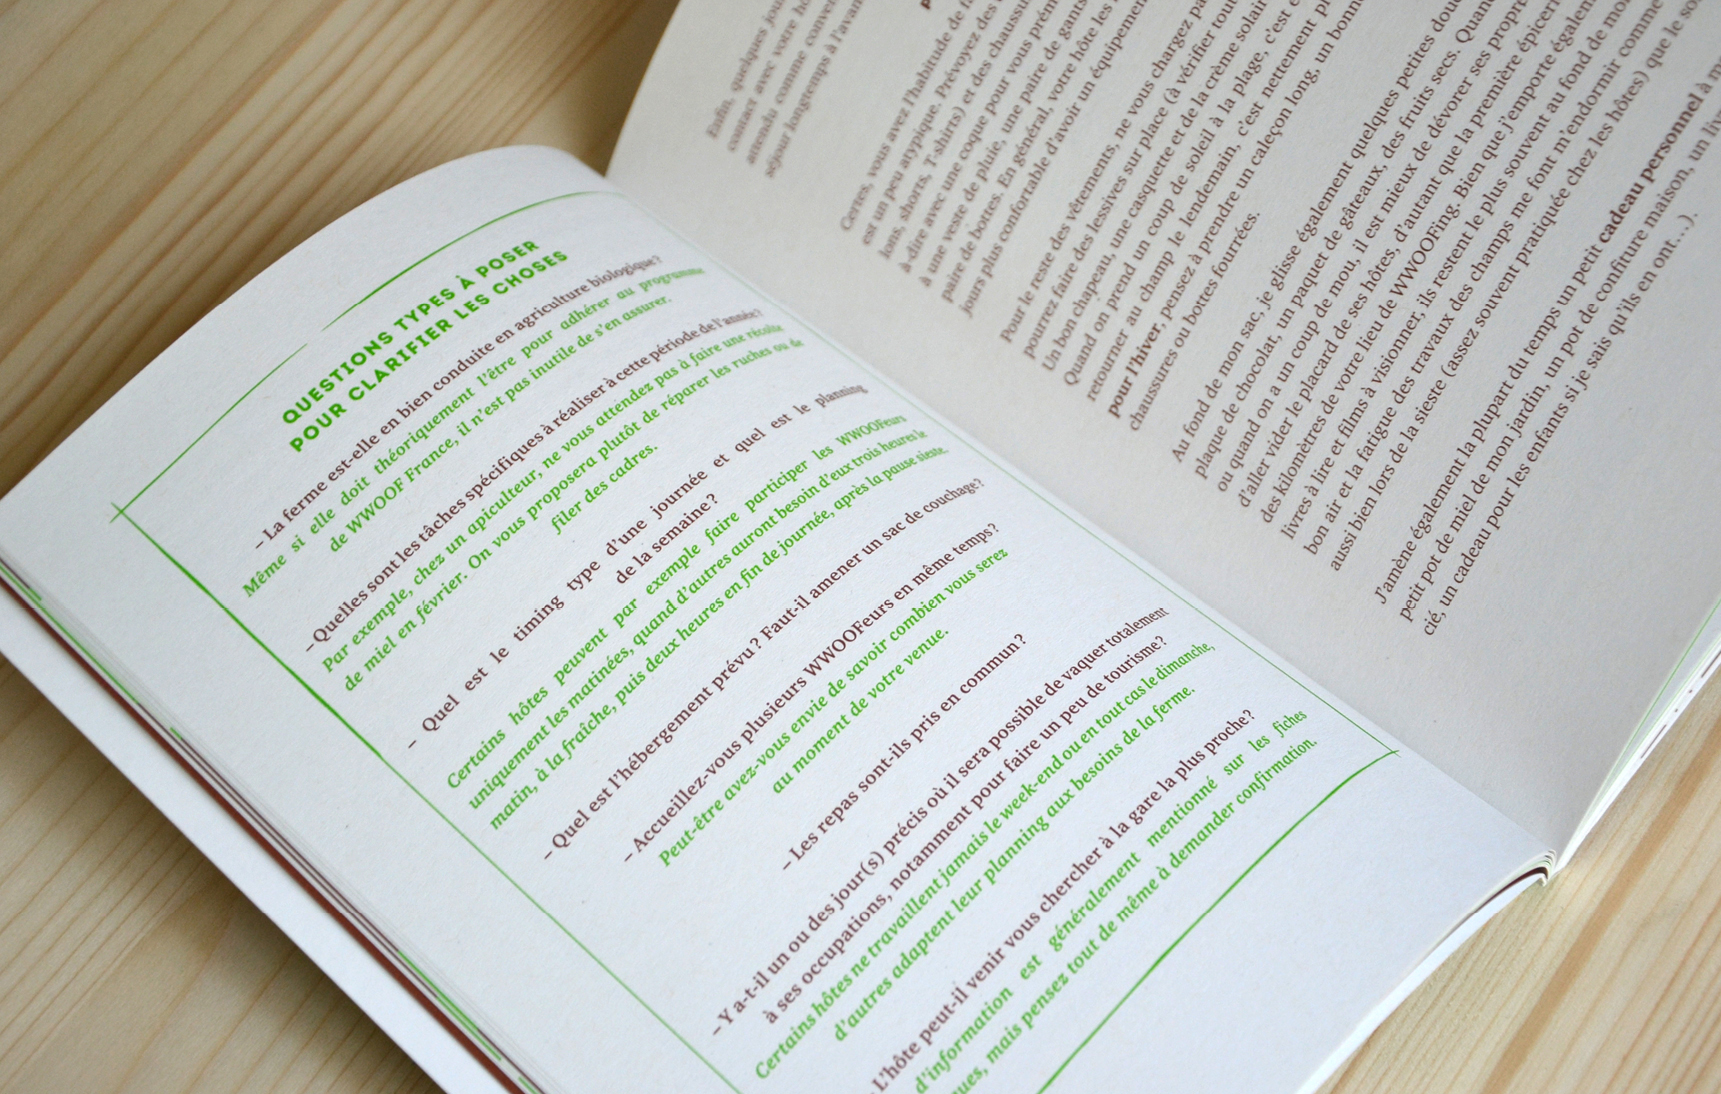 QUESTIONS TYPES À POSER
POUR CLARIFIER LES CHOSES
– La ferme est-elle en bien conduite en agriculture biologique?
Même si elle doit théoriquement l'être pour adhérer au programme
de WWOOF France, il n'est pas inutile de s'en assurer.
– Quelles sont les tâches spécifiques à réaliser à cette période de l'année?
Par exemple, chez un apiculteur, ne vous attendez pas à faire une récolte
de miel en février. On vous proposera plutôt de réparer les ruches ou de
filer des cadres.
– Quel est le timing type d'une journée et quel est le planning
de la semaine?
Certains hôtes peuvent par exemple faire participer les WWOOFeurs
uniquement les matinées, quand d'autres auront besoin d'eux trois heures le
matin, à la fraîche, puis deux heures en fin de journée, après la pause sieste.
– Quel est l'hébergement prévu? Faut-il amener un sac de couchage?
– Accueillez-vous plusieurs WWOOFeurs en même temps?
Peut-être avez-vous envie de savoir combien vous serez
au moment de votre venue.
– Les repas sont-ils pris en commun?
– Y a-t-il un ou des jour(s) précis où il sera possible de vaquer totalement
à ses occupations, notamment pour faire un peu de tourisme?
Certains hôtes ne travaillent jamais le week-end ou en tout cas le dimanche,
d'autres adaptent leur planning aux besoins de la ferme.
L'hôte peut-il venir vous chercher à la gare la plus proche?
d'information est généralement mentionné sur les fiches
ques, mais pensez tout de même à demander confirmation.
Enfin, quelques jou
contact avec votre hô
attendu comme conven
séjour longtemps à l'avan
Certes, vous avez l'habitude de f
est un peu atypique. Prévoyez des
lons, shorts, T-shirts) et des chaussu
à-dire avec une coque pour vous prém
à une veste de pluie, une paire de gants
paire de bottes. En général, votre hôte les
jours plus confortable d'avoir un équipement
Pour le reste des vêtements, ne vous chargez pa
pourrez faire des lessives sur place (à vérifier tou
Un bon chapeau, une casquette et de la crème solair
Quand on prend un coup de soleil à la plage, c'est e
retourner au champ le lendemain, c'est nettement pl
pour l'hiver, pensez à prendre un caleçon long, un bonn
chaussures ou bottes fourrées.
Au fond de mon sac, je glisse également quelques petites dou
plaque de chocolat, un paquet de gâteaux, des fruits secs. Quan
ou quand on a un coup de mou, il est mieux de dévorer ses propre
d'aller vider le placard de ses hôtes, d'autant que la première épiceri
des kilomètres de votre lieu de WWOOFing. Bien que j'emporte égalem
livres à lire et films à visionner, ils restent le plus souvent au fond de mo
bon air et la fatigue des travaux des champs me font m'endormir comme
aussi bien lors de la sieste (assez souvent pratiquée chez les hôtes) que le so
J'amène également la plupart du temps un petit cadeau personnel à m
petit pot de miel de mon jardin, un pot de confiture maison, un livr
cié, un cadeau pour les enfants si je sais qu'ils en ont…).